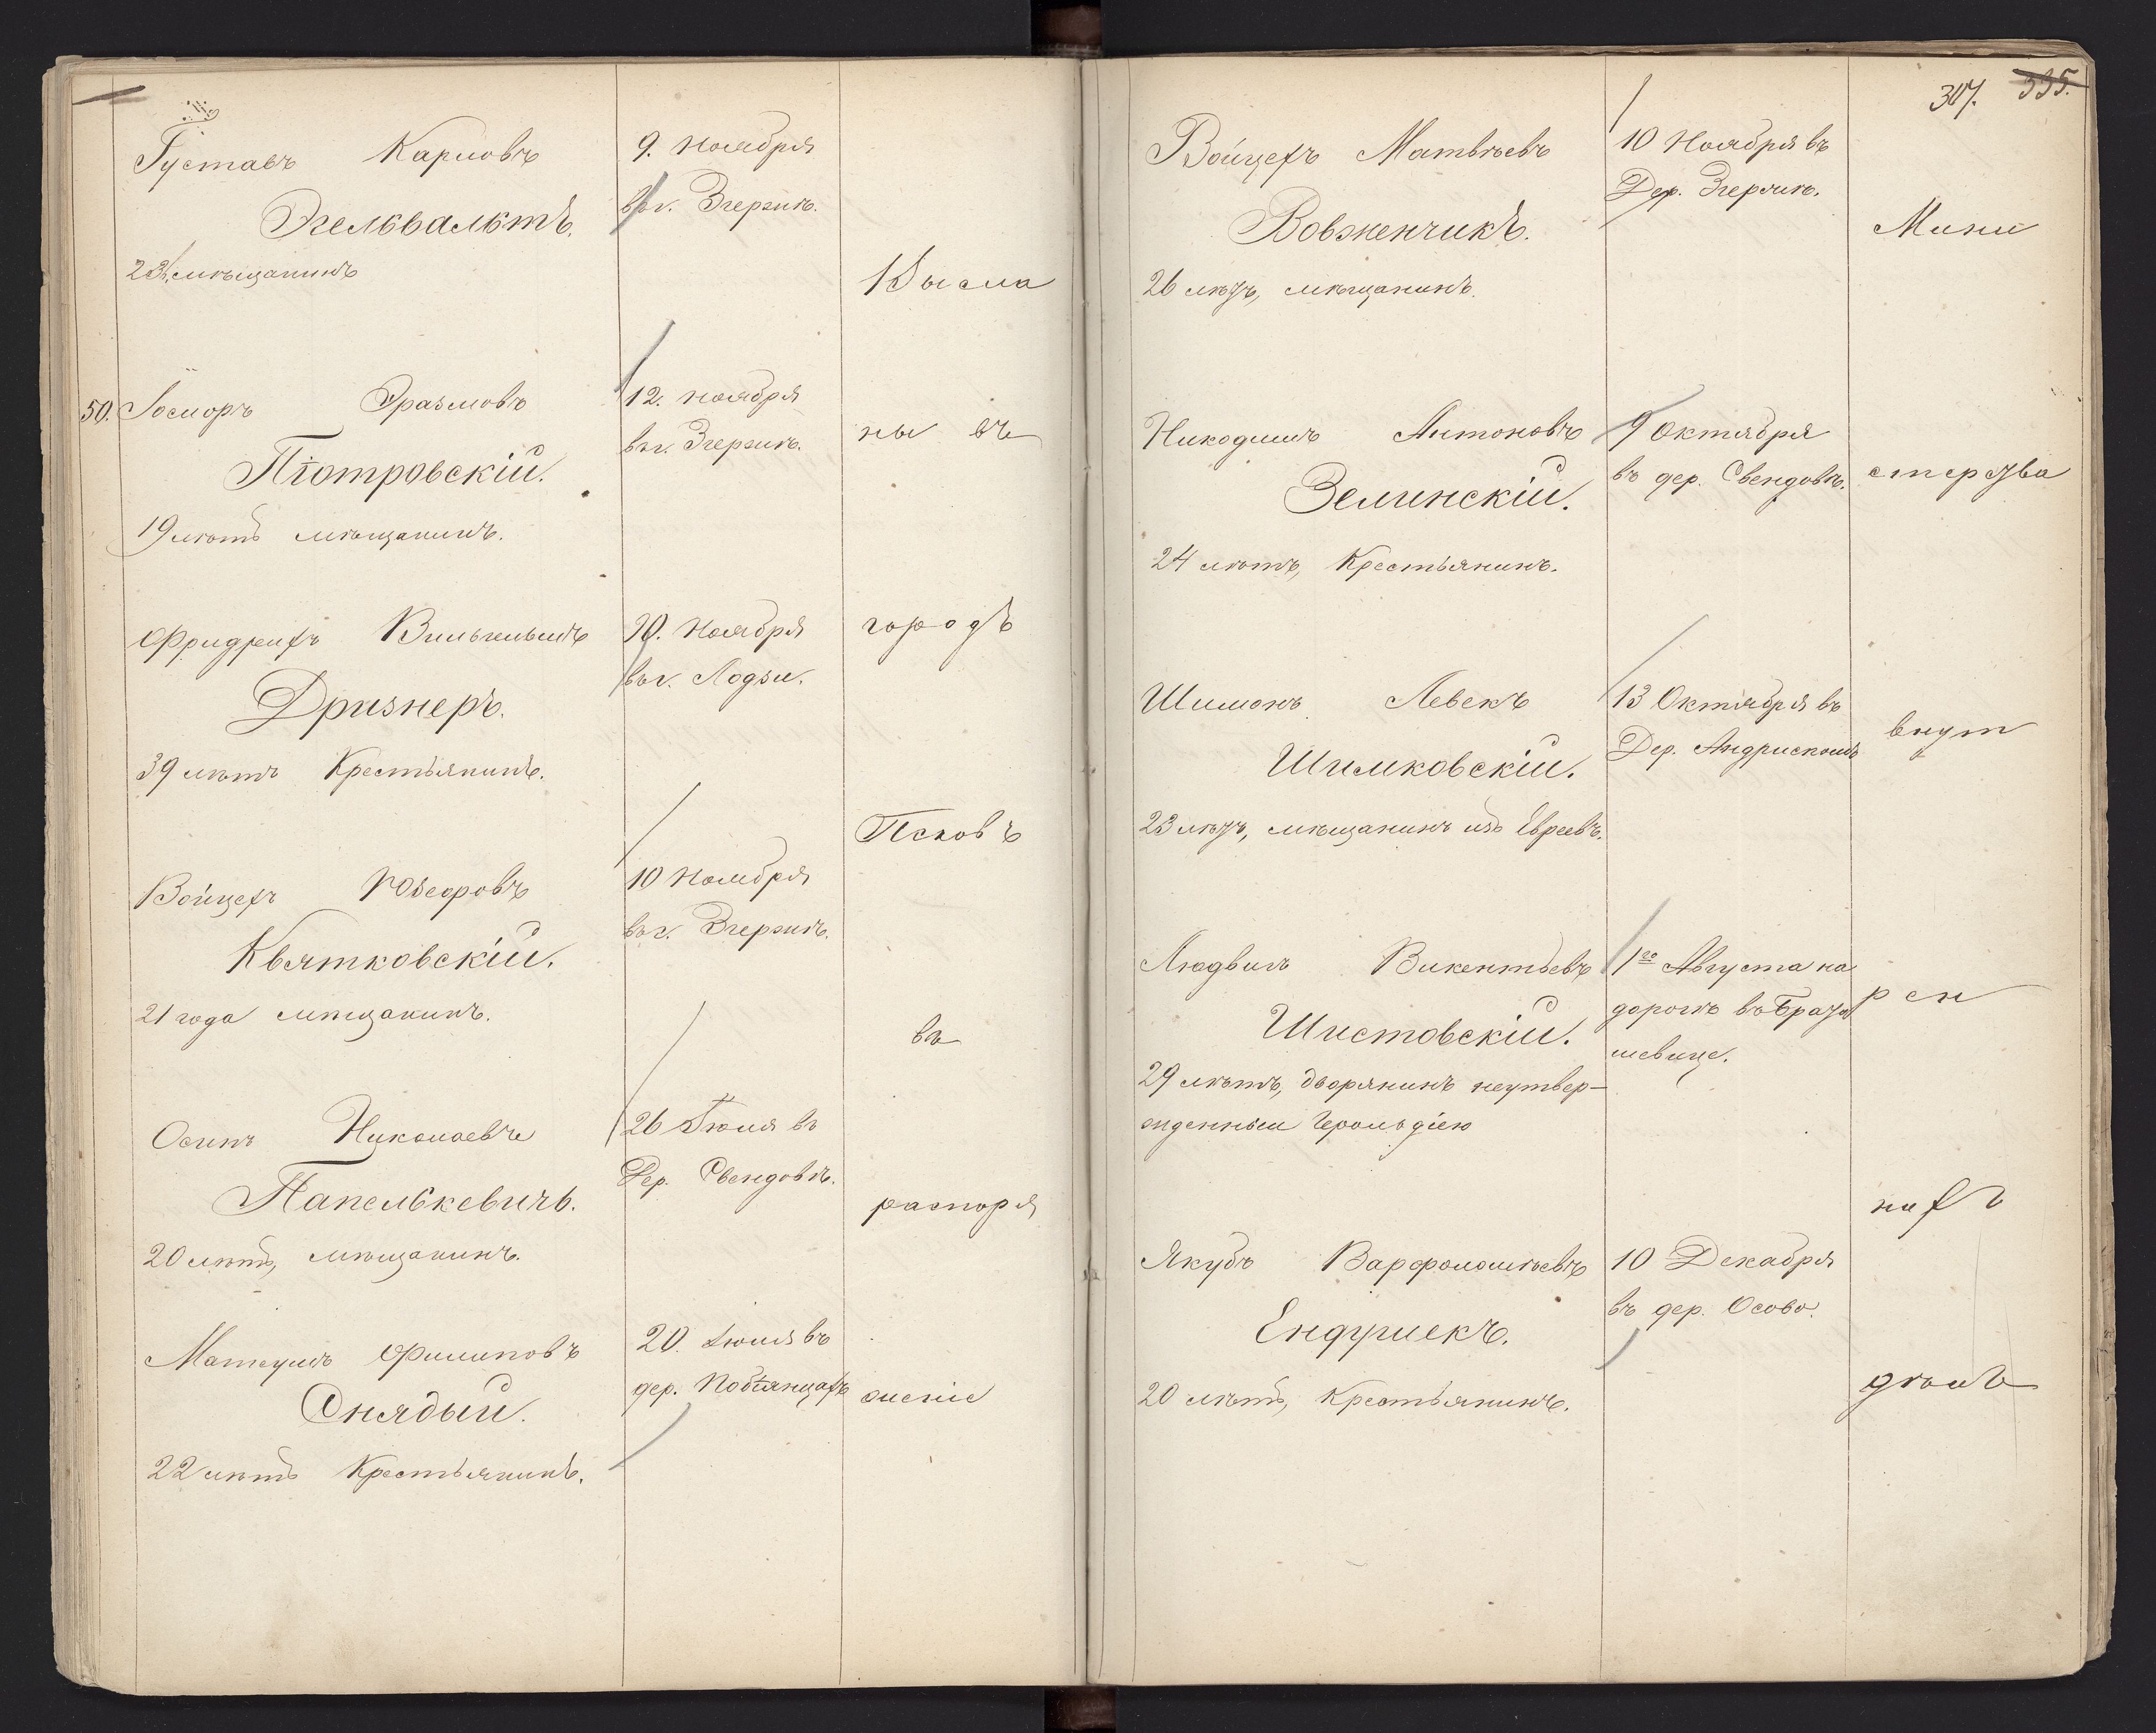 Густавъ Карловъ
Эгельвальктъ.
23 л. мѣщанинъ
9. Ноября
въ г. Згержѣ.
50. Эразмовъ
Піотровскій.
19 лѣтъ мѣщанинъ.
12. Ноября
въ г. Згержѣ.
Фридрихъ Вильгельмъ
Дризнеръ.
39 лѣтъ Крестьянинъ.
20. Ноября
въ г. Лодзи.
Войцехъ Юзефовъ
Квятковскій.
21 года мѣщанинъ.
10 Ноября
въ г. Згержѣ.
Осипъ Николаевъ
Папелькевичъ.
20 лѣтъ, мѣщанинъ.
26 Іюля въ
Дер. Свендовѣ.
Матеушъ Филиповъ
Снядый.
22 лѣтъ Крестьянинъ.
20. Іюля въ
дер. Побіянцахъ
Высла
ны въ
городъ
Псковъ
въ
распоря
женіе
307. 335.
Войцехъ Матвѣевъ
Вовженчикъ.
26 лѣтъ, мѣщанинъ.
10 Ноября въ
Дер. Згержѣ.
Никодимъ Антоновъ
Зелинскій.
24 лѣтъ, Крестьянинъ.
9 Октября
въ дер. Свендовѣ.
Шимонъ Левекъ
Шимковскій.
23 лѣтъ, мѣщанинъ изъ Евреевъ.
13 Октября въ
Дер.
Людвигъ Викентьевъ
Шистовскій.
29 лѣтъ, дворянинъ неутвер-
жденный Герольдіею
1го Августа на
дорогѣ въ
Якубъ Варфоломѣевъ
Ендришекъ.
20 лѣтъ, Крестьянинъ.
10 Декабря
въ дер. Осово.
Мини
стерства
внут
рен
нихъ
дѣлъ